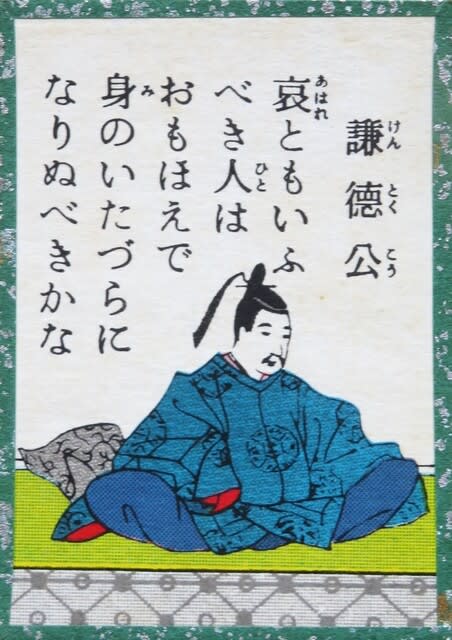 謙德公
けんとくこう
哀ともいふ
あはれ
べき人は
ひと
おもほえで
身のいたづらに
み
なりぬべきかな